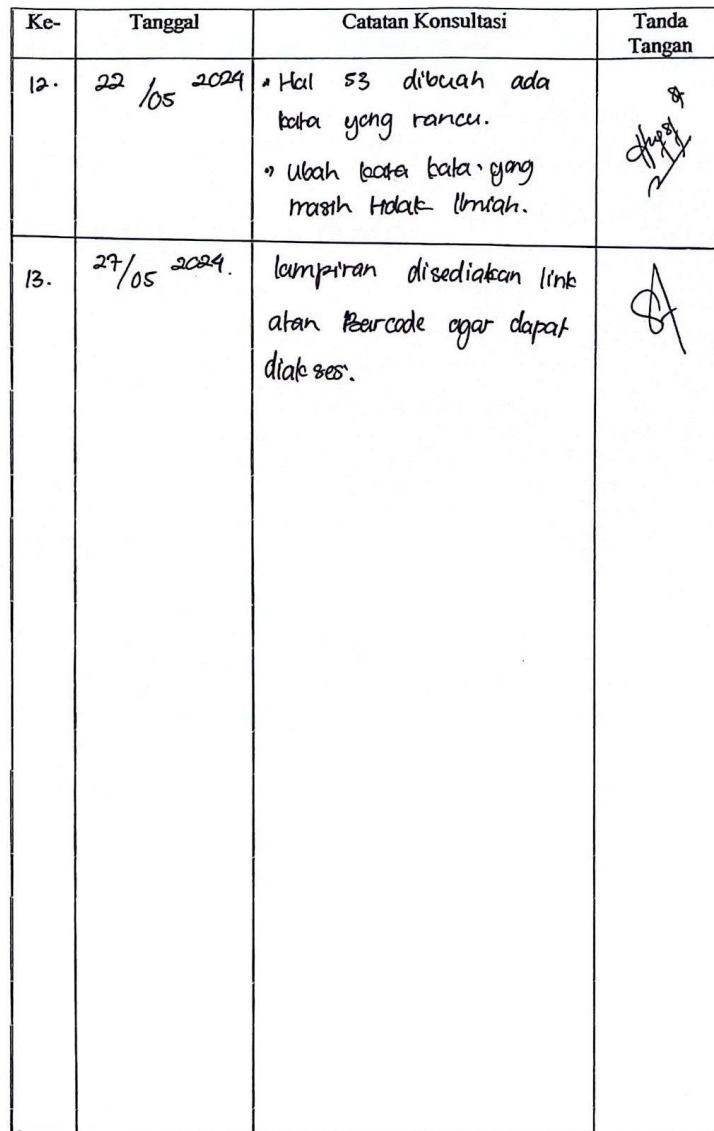 Ke- Tanggal Catatan Konsultasi Tanda
Tangan
12. 22/05 2024 • Hal 53 dibuah ada
kata yang rancu.
• Ubah kata kata yang
masih tidak ilmiah.
13. 27/05 2024. lampiran disediakan link
atau Barcode agar dapat
diakses.